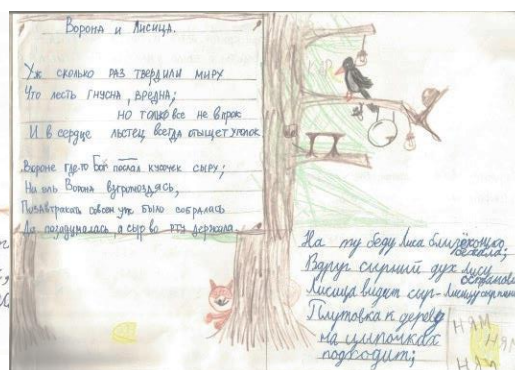 Ворона и Лисица.
Уж сколько раз твердили миру
Что лесть гнусна, вредна;
но только все не впрок
И в сердце льстец всегда отыщет уголок.
Вороне где-то Бог послал кусочек сыру;
На ель Ворона взгромоздясь,
Позавтракать совсем уж было собралась
Да позадумалась а сыр во рту держала.
На ту беду Лиса близёхонько
бежала;
Вдруг сырный дух лису
останови
Лисица видит сыр-лисицу сыр плени
Плутовка к дереву
на цыпочках
подходит;
НЯМ
НЯМ
НЯМ